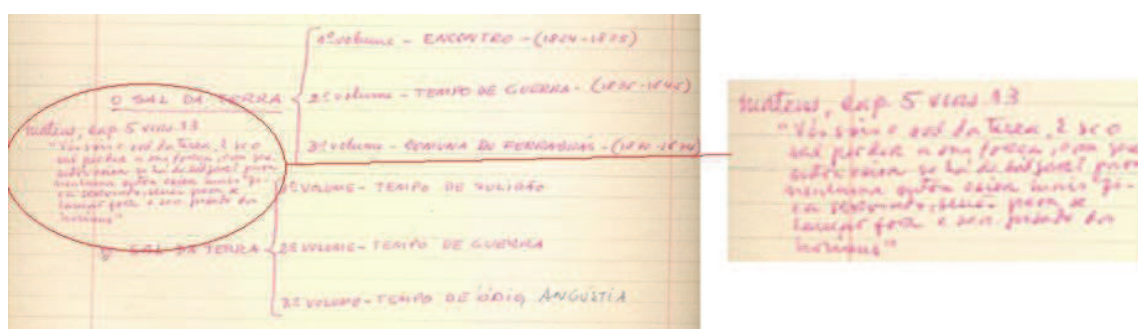 1º volume - ENCONTRO - (1824-1835)
O SAL DA TERRA
2º volume - TEMPO DE GUERRA - (1835-1845)
Mateus, cap 5 vers 13
"Vós sois o sal da terra. E se o
sal perder a sua força, com que
outra coisa se há de salgar? para
nenhuma outra coisa mais fi-
ca servindo, senão para se
lançar fora e ser pisado dos
homens"
3º volume - COMUNA DO FERRABRÁS - (1870-1874)
1º VOLUME - TEMPO DE SOLIDÃO
O SAL DA TERRA
2º VOLUME - TEMPO DE GUERRA
3º VOLUME - TEMPO DE ÓDIO, ANGÚSTIA
Mateus, cap 5 vers 13
"Vós sois o sal da terra. E se o
sal perder a sua força, com que
outra coisa se há de salgar? para
nenhuma outra coisa mais fi-
ca servindo, senão para se
lançar fora e ser pisado dos
homens"